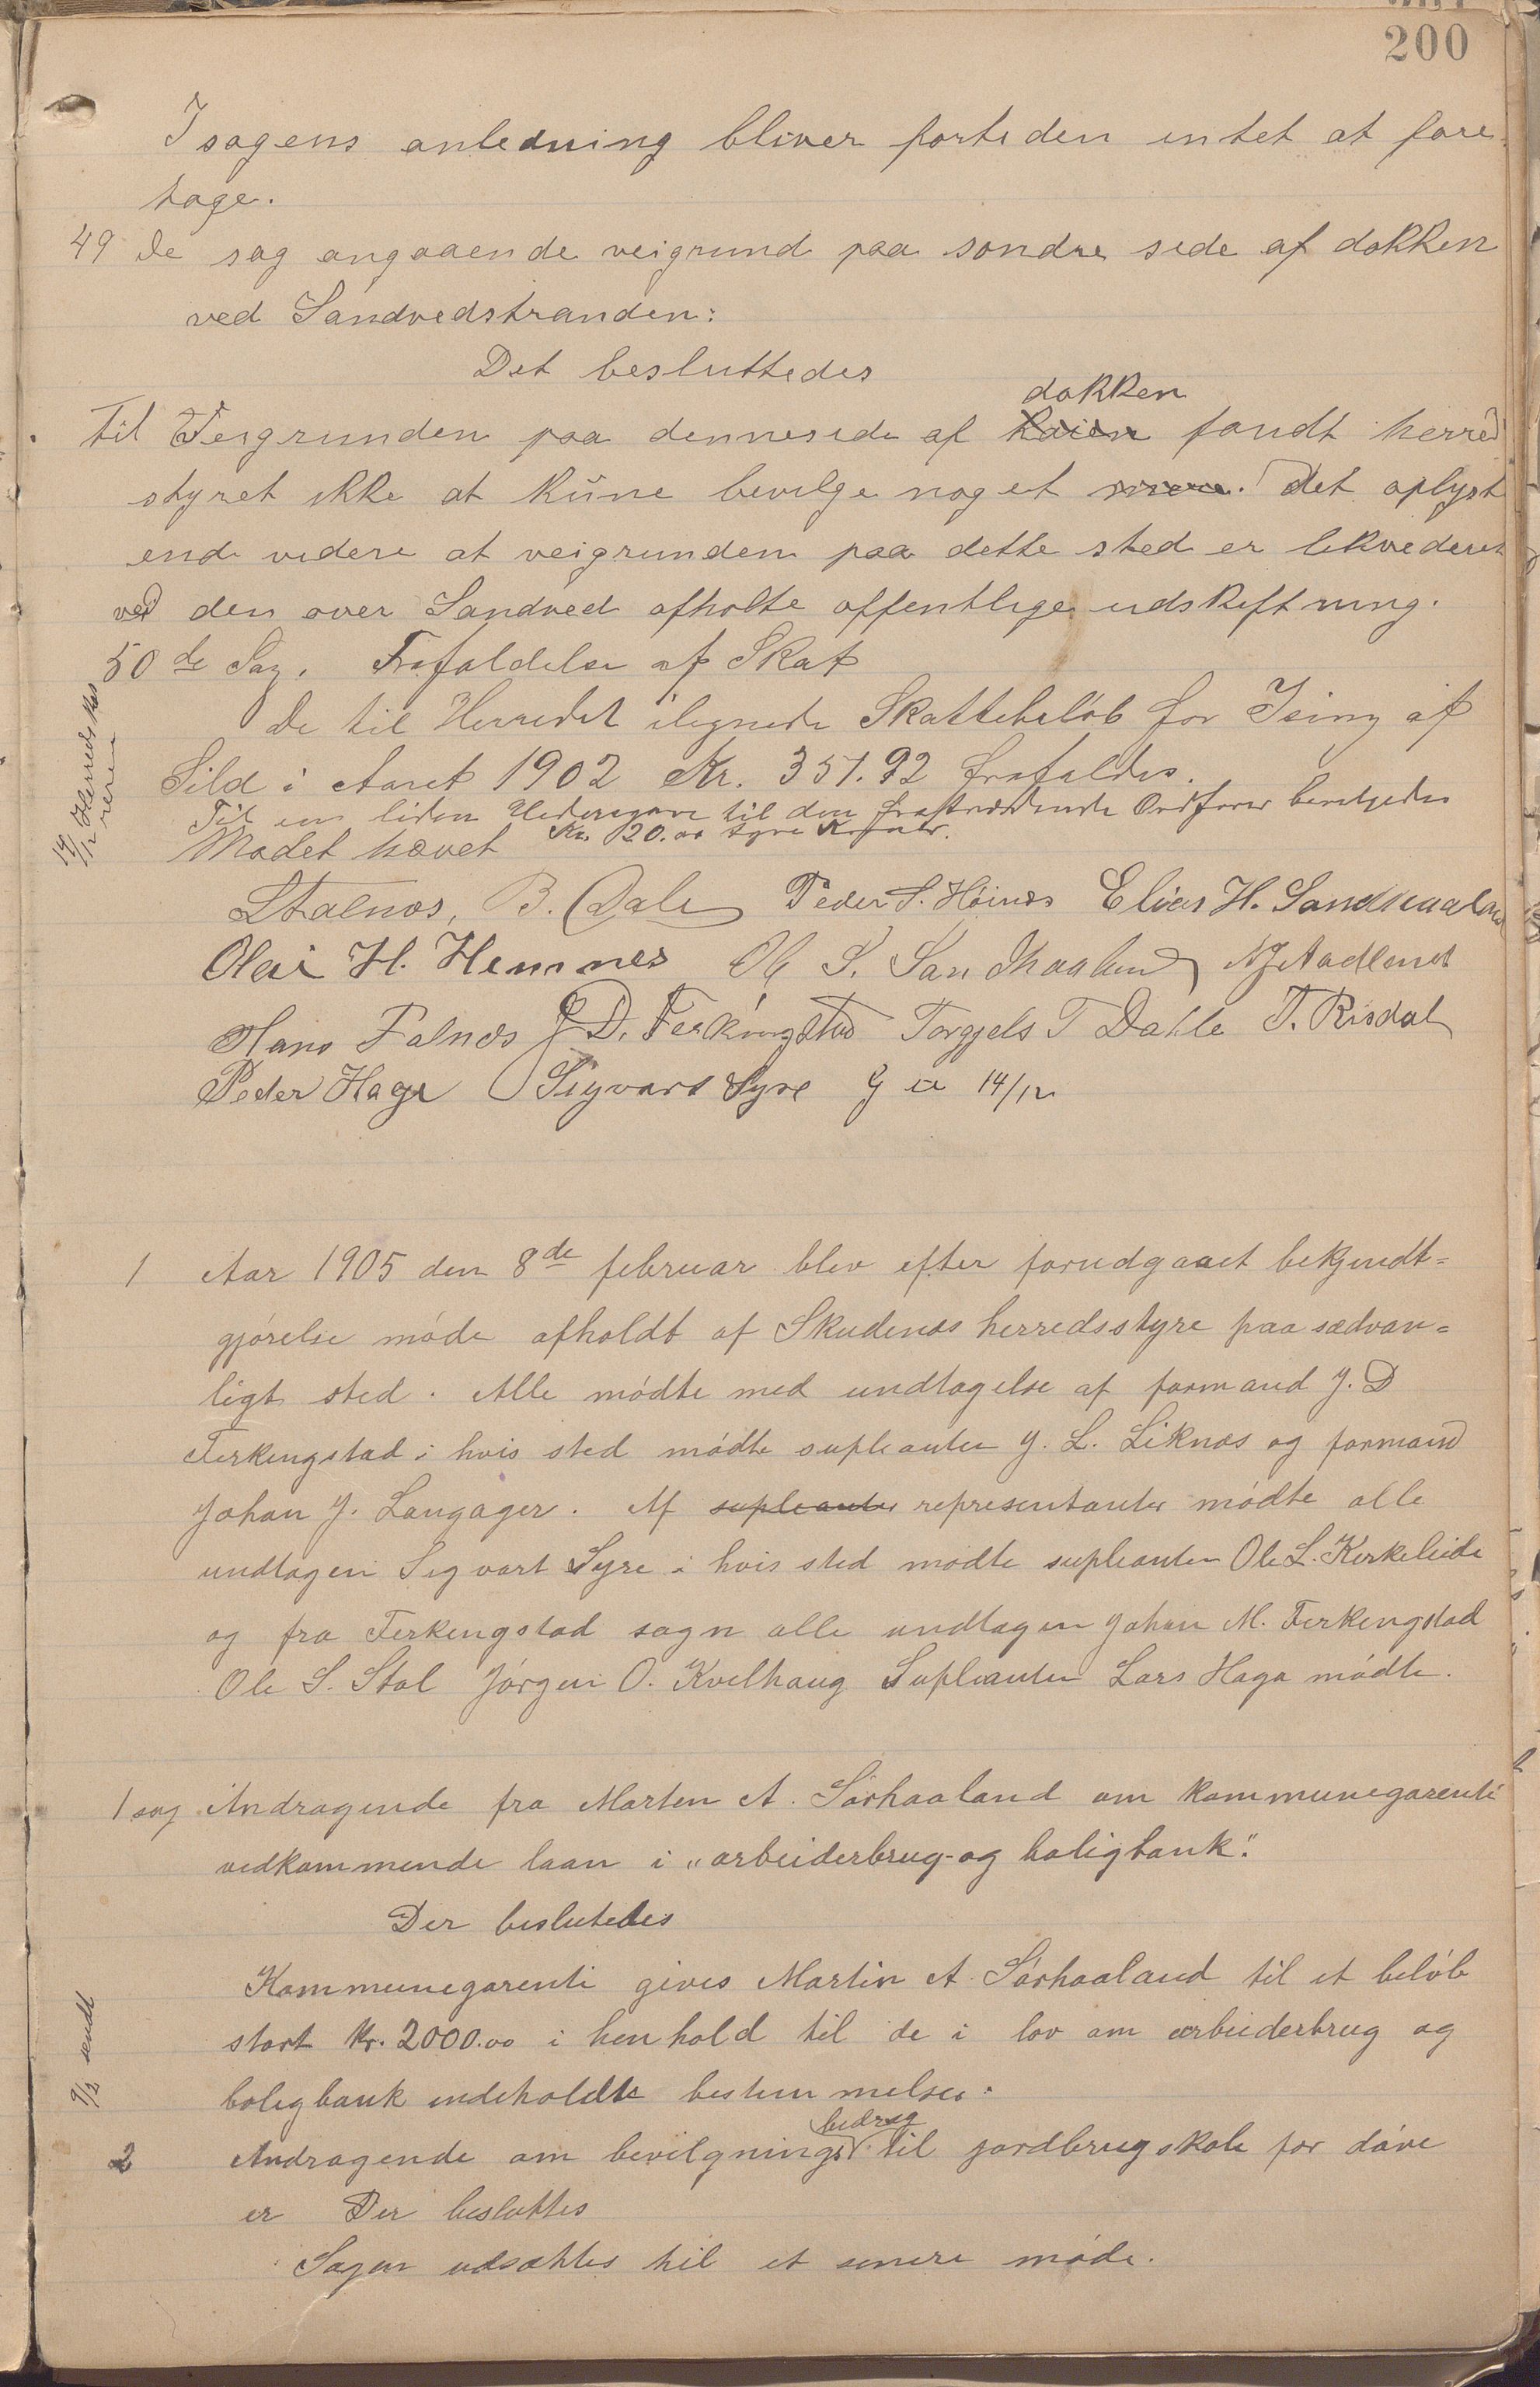 200
I sagens anledning bliver fortiden intet at fore-
tage.
49 de sag angaaende veigrund paa søndre side af dokken
ved Sandvedstranden:
Det besluttedes
dokken
Til Veigrunden paa denneside af kaien fandt herred
styret ikke at kune bevilge noget mere. det oplyst
end videre at veigrunden paa dette sted er likvideret
ved den over Sandved afholte offentlige udskiftning.
50 de Sag. Frafaldelse af Skat
De til Herredet ilignede Skattebeløb for Ising af
Sild i Aaret 1902 Kr. 351.92 frafaldes.
Til en liden Hedersgave til den fratrædende Ordfører bevilgedes
Kr. 20.00 tyve Kroner.
Mødet hævet
14/12 Herredskas
reren
B. Dale Peder S. Høines Elias H. Sandhaaland
Olai H. Hemnes Ole S. Sandhaaland Aadland
Hans Falnes J. D. Ferkingstad Torgjels T Dahle T. Risdal
Peder Hage Sigvart Syre 14/12
1 Aar 1905 den 8de februar blev efter forudgaaet bekjendt=
gjørelse møde afholdt af Skudenæs herredsstyre paa sædvan=
ligt sted. Alle mødte med undtagelse af formand J. D
Ferkingstad i hvis sted mødte supleanten J. L. Liknæs og formand
Johan J. Langager. Af supleanter representanter mødte alle
undtagen Sigvart Syre i hvis sted mødte supleanten Ole L. Kirkeleide
og fra Ferkingstad sogn alle undtagen Johan M. Ferkingstad
Ole S. Stol Jørgen O. Kvilhaug Supleanten Lars Haga mødte.
1 sag Andragende fra Marten A. Sørhaaland om kommunegarenti
vedkommende laan i „arbeiderbrug- og boligbank".
Der beslutedes
Kommunegarenti gives Martin A. Sørhaaland til et beløb
stort Kr. 2000.00 i henhold til de i lov om arbeiderbrug og
boligbank indeholdte bestemmelser.
9/2 sendt
bidrag
2 Andragende om bevilgnings til jordbrugskole for døve
er Der besluttes
Sagen udsættes til et senere møde.